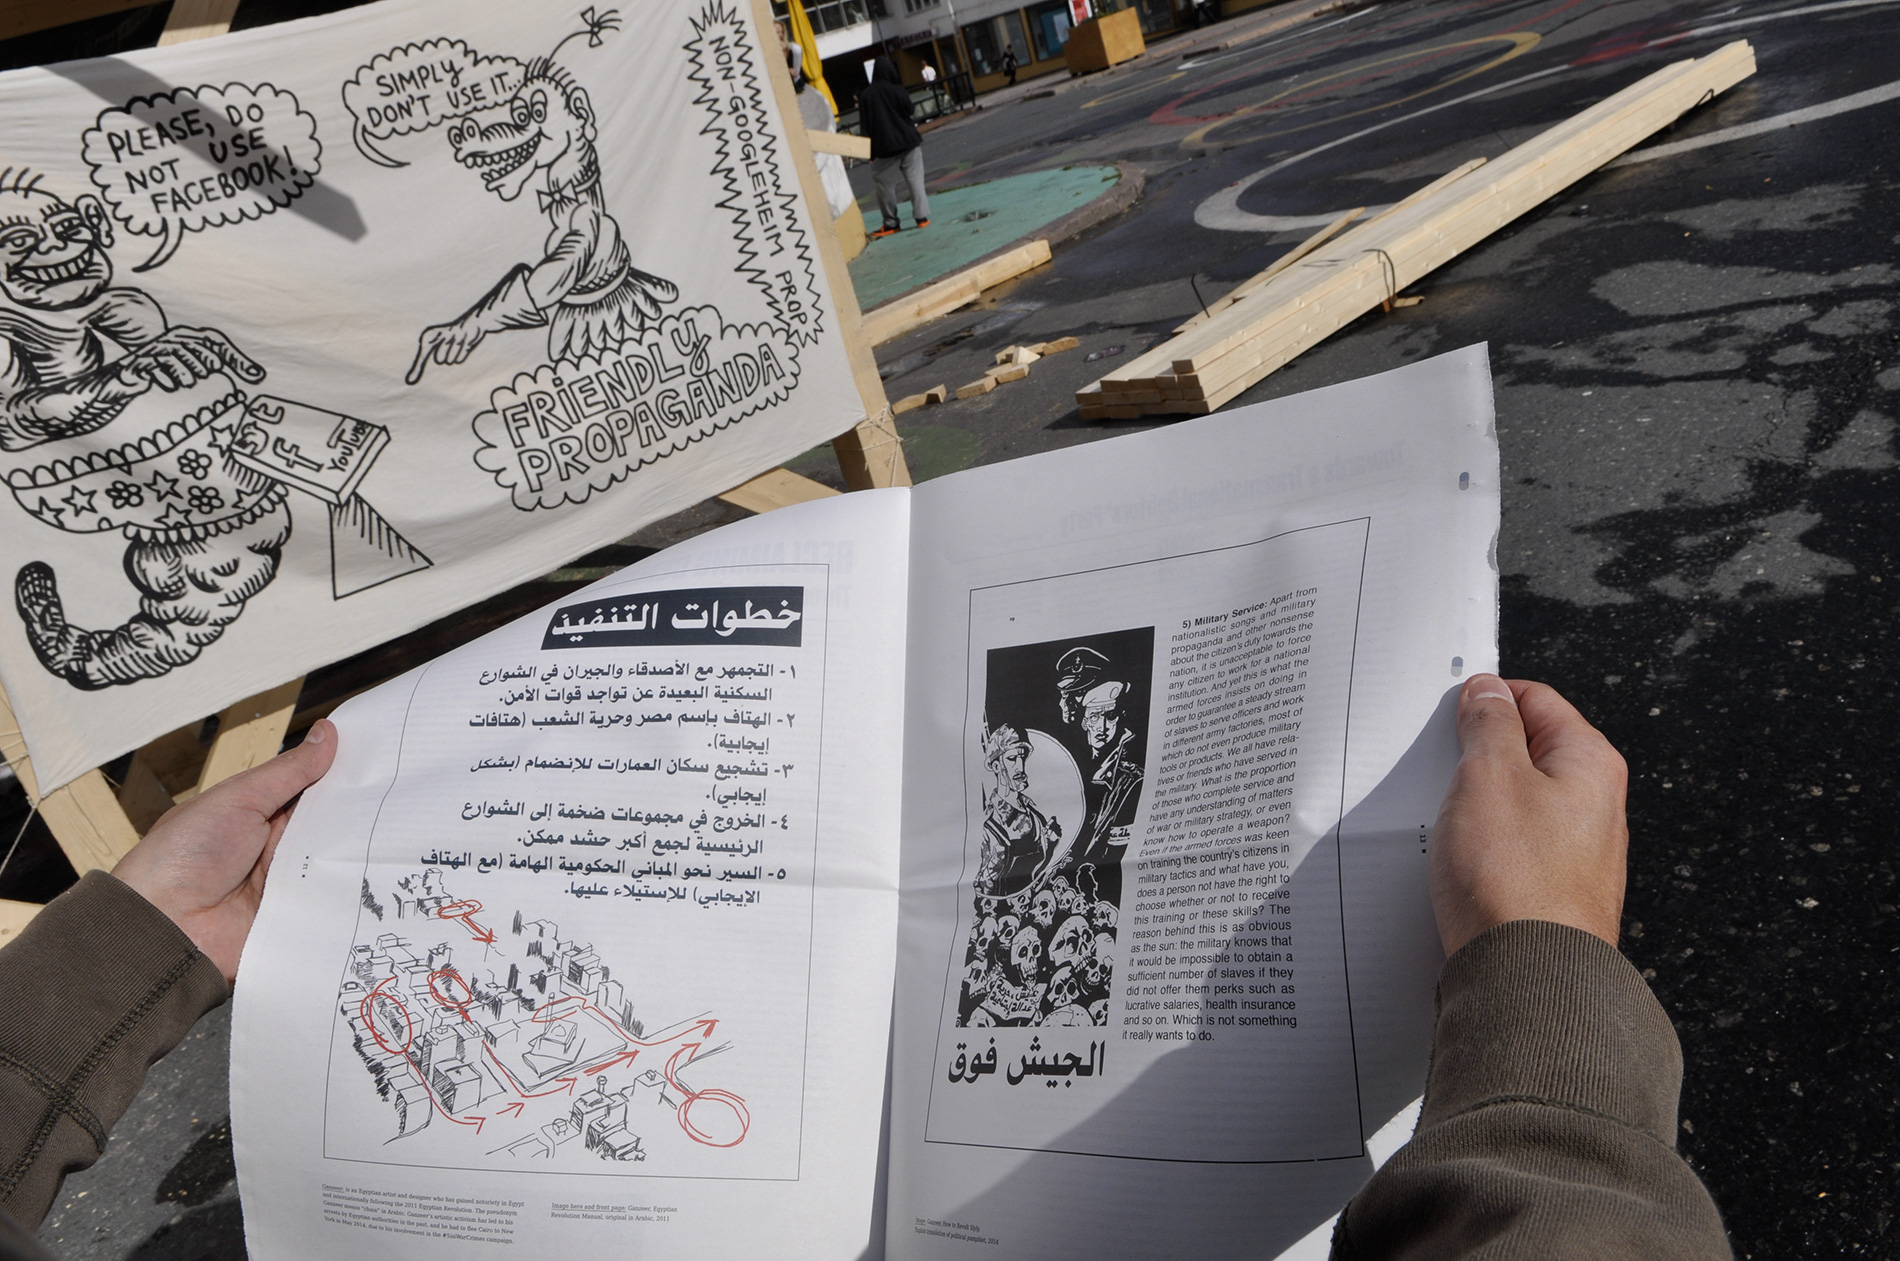 PLEASE, DO
NOT USE
FACEBOOK!
SIMPLY
DON'T USE IT...
NON-GOOGLEHEIM PROP.
FRIENDLY
PROPAGANDA
f
YOUTUBE
خطوات التنفيذ
١- التجمهر مع الأصدقاء والجيران في الشوارع
السكنية البعيدة عن تواجد قوات الأمن.
٢- الهتاف بإسم مصر وحرية الشعب (هتافات
إيجابية).
٣- تشجيع سكان العمارات للإنضمام (بشكل
إيجابي).
٤- الخروج في مجموعات ضخمة إلى الشوارع
الرئيسية لجمع أكبر حشد ممكن.
٥- السير نحو المباني الحكومية الهامة (مع الهتاف
الإيجابي) للإستيلاء عليها.
Ganzeer: is an Egyptian artist and designer who has gained notoriety in Egypt
and internationally following the 2011 Egyptian Revolution. The pseudonym
Ganzeer means "chain" in Arabic. Ganzeer's artistic activism has led to his
arrests by Egyptian authorities in the past, and he had to flee Cairo to New
York in May 2014, due to his involvement in the #SisiWarCrimes campaign.
Image here and front page: Ganzeer, Egyptian
Revolution Manual, original in Arabic, 2011
5) Military Service: Apart from
nationalistic songs and military
propaganda and other nonsense
about the citizen's duty towards the
nation, it is unacceptable to force
any citizen to work for a national
institution. And yet this is what the
armed forces insists on doing in
order to guarantee a steady stream
of slaves to serve officers and work
in different army factories, most of
which do not even produce military
tools or products. We all have rela-
tives or friends who have served in
the military. What is the proportion
of those who complete service and
have any understanding of matters
of war or military strategy, or even
know how to operate a weapon?
Even if the armed forces was keen
on training the country's citizens in
military tactics and what have you,
does a person not have the right to
choose whether or not to receive
this training or these skills? The
reason behind this is as obvious
as the sun: the military knows that
it would be impossible to obtain a
sufficient number of slaves if they
did not offer them perks such as
lucrative salaries, health insurance
and so on. Which is not something
it really wants to do.
الجيش فوق
Image: Ganzeer, How to Revolt Slyly,
English translation of political pamphlet, 2014
13